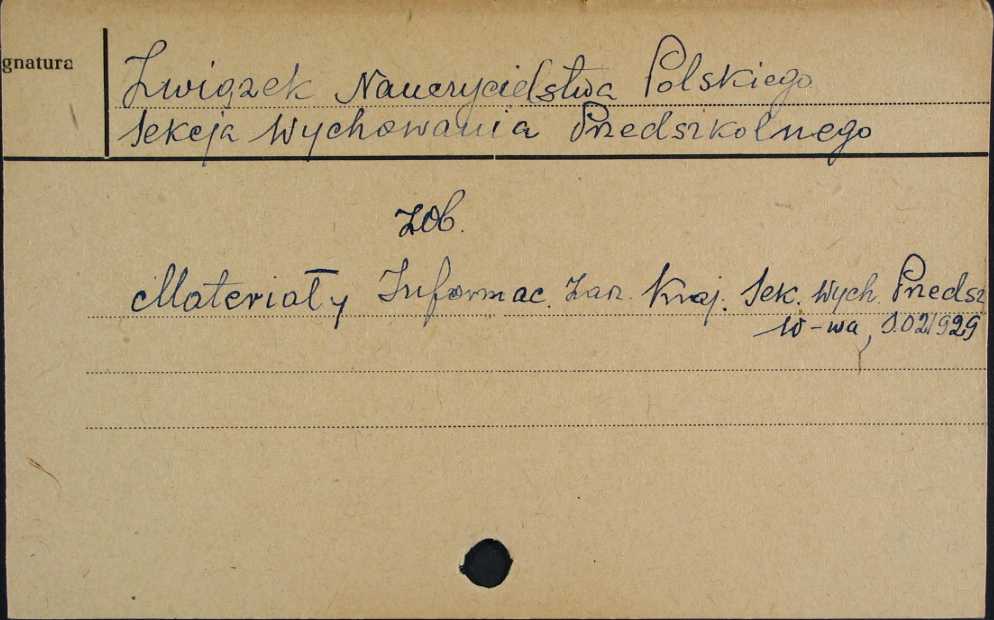 gnatura
Związek Nauczycielstwa Polskiego
Sekcja Wychowania Przedszkolnego
zob.
Materiały Informac. Zarz. Kraj. Sek. Wych. Przedsz
W-wa, S.021929